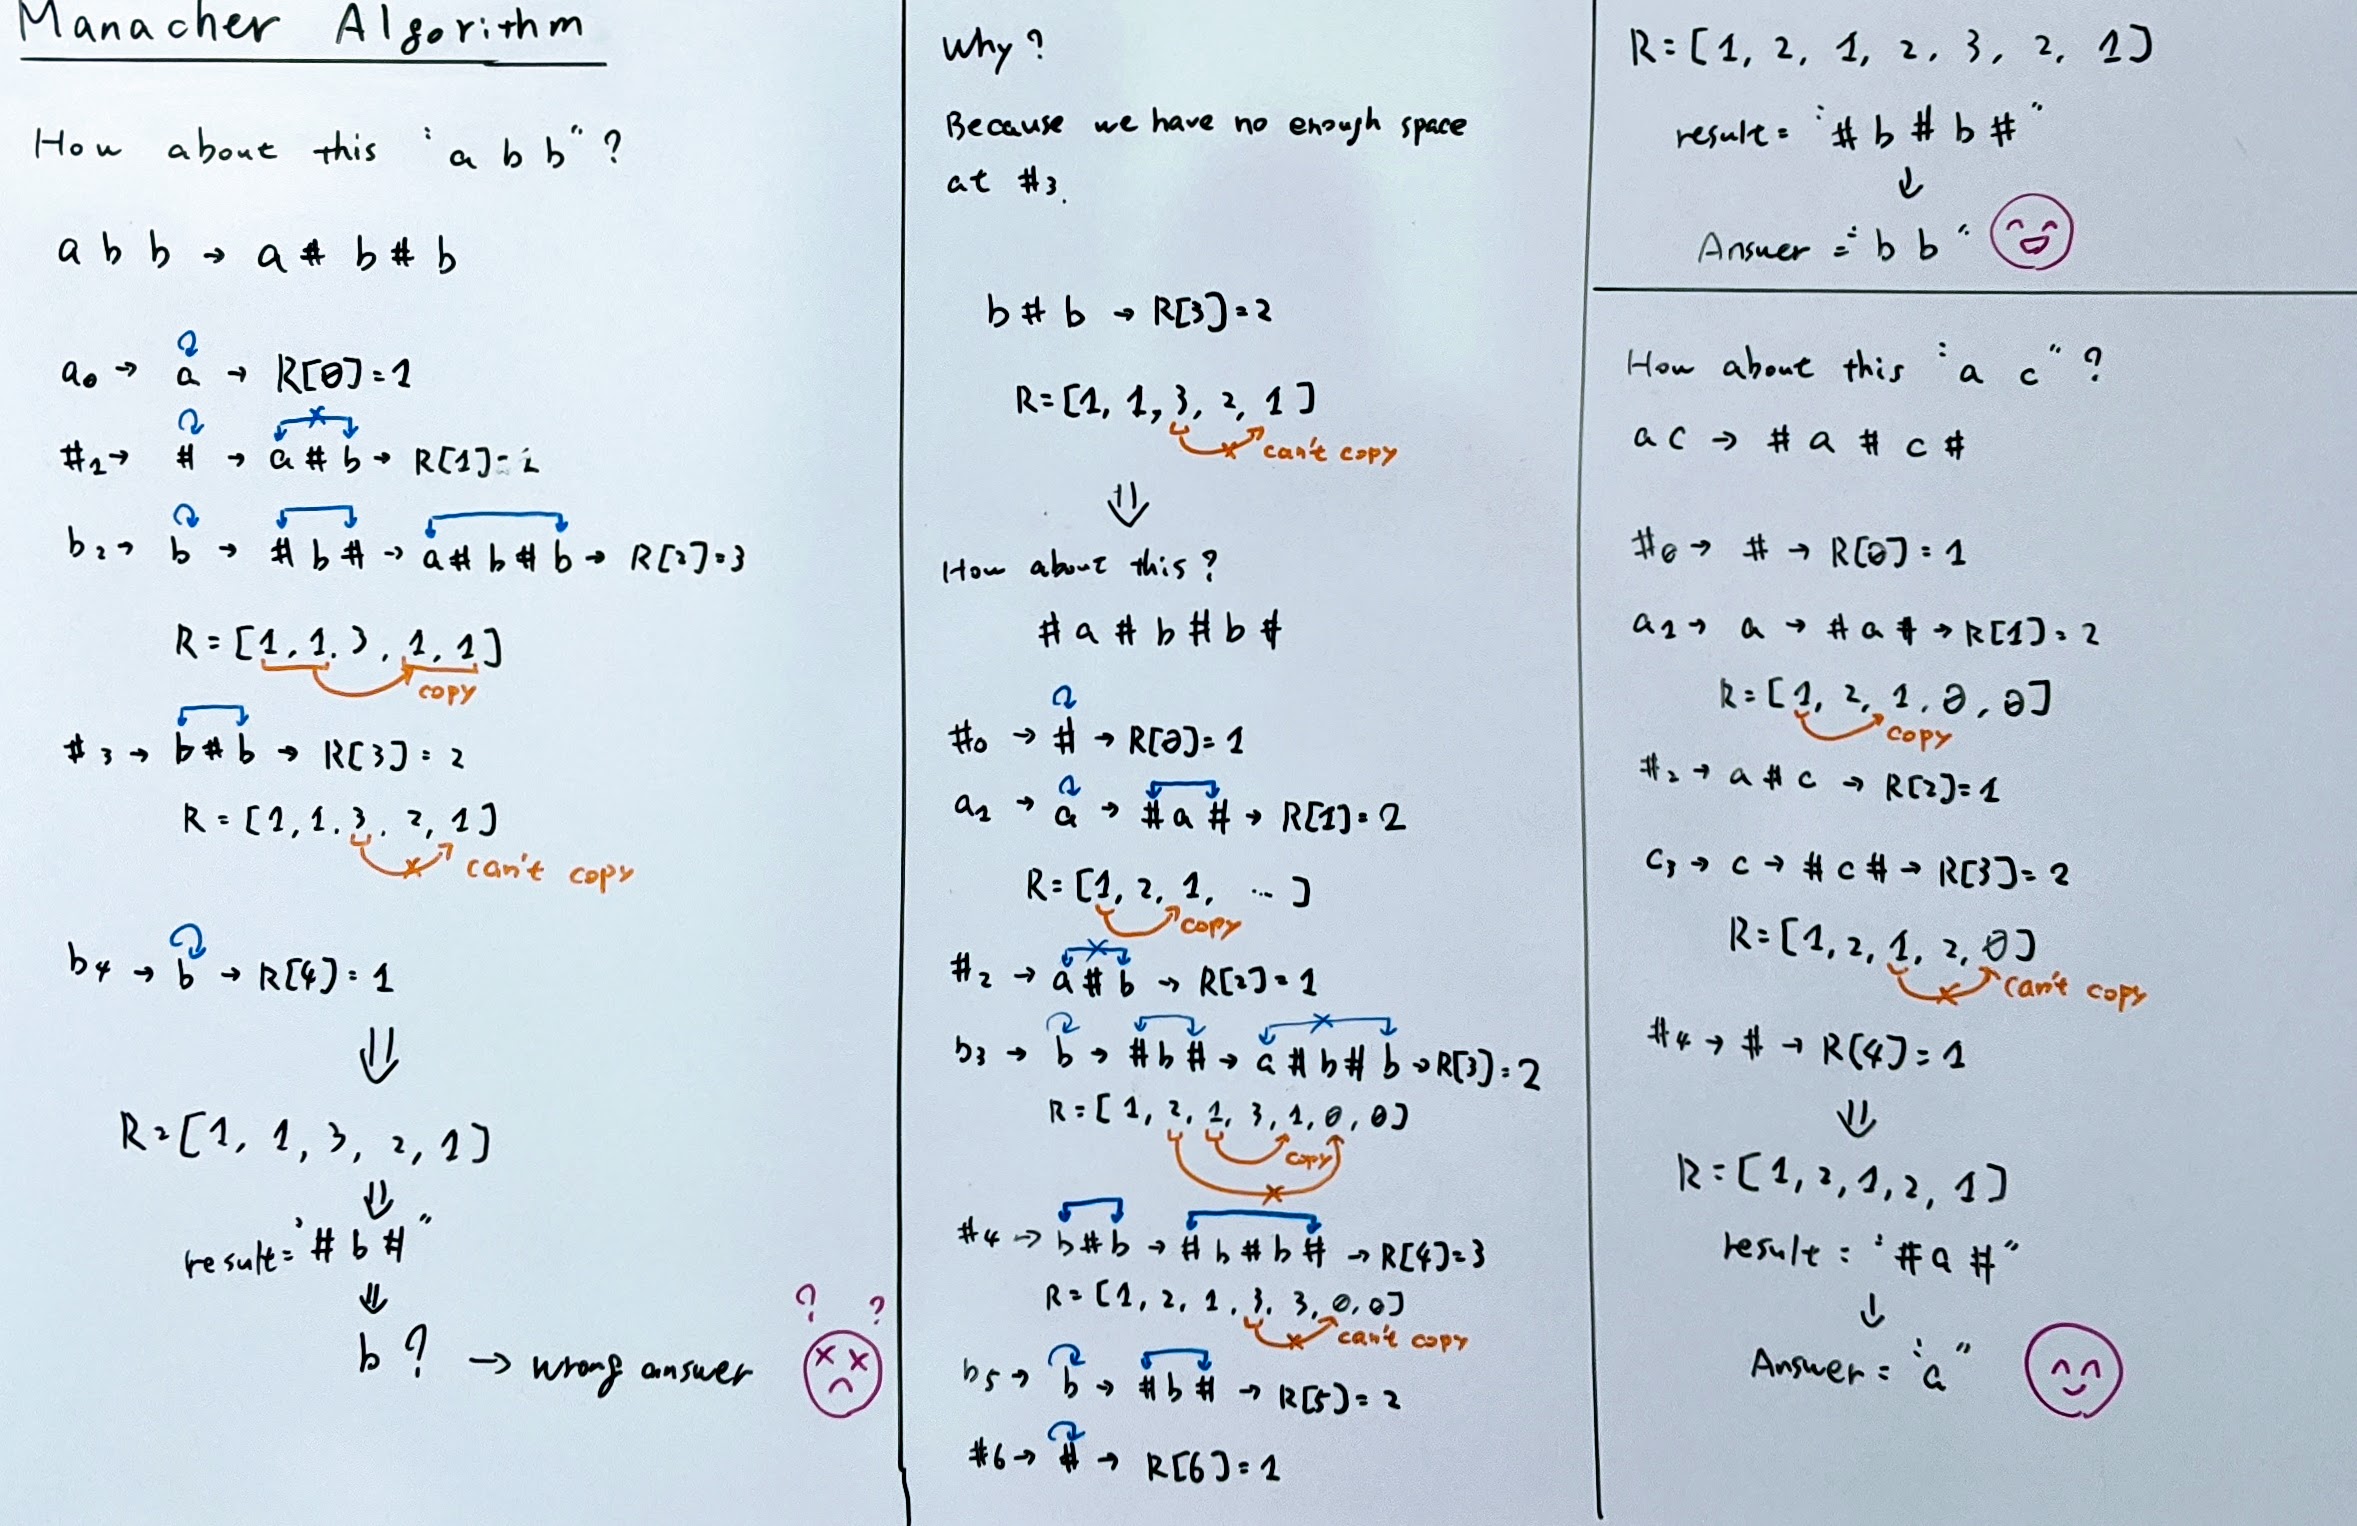 Manacher Algorithm
How about this "a b b"?
a b b → a # b # b
a0 → a → R[0]=1
#1 → # → a # b → R[1]=1
b2 → b → # b # → a # b # b → R[2]=3
R=[1, 1, 3, 1, 1]
copy
#3 → b # b → R[3]=2
R=[1, 1, 3, 2, 1]
can't copy
b4 → b → R[4]=1
⇓
R=[1, 1, 3, 2, 1]
⇓
result="# b #"
⇓
b ? → wrong answer
? ?
Why?
Because we have no enough space
at #3.
b # b → R[3]=2
R=[1, 1, 3, 2, 1]
can't copy
⇓
How about this?
# a # b # b #
#0 → # → R[0]=1
a1 → a → # a # → R[1]=2
R=[1, 2, 1, ... ]
copy
#2 → a # b → R[2]=1
b3 → b → # b # → a # b # b → R[3]=2
R=[1, 2, 1, 3, 1, 0, 0]
copy
#4 → b # b → # b # b # → R[4]=3
R=[1, 2, 1, 3, 3, 0, 0]
can't copy
b5 → b → # b # → R[5]=2
#6 → # → R[6]=1
R=[1, 2, 1, 2, 3, 2, 1]
result="# b # b #"
↓
Answer="b b"
How about this "a c"?
a c → # a # c #
#0 → # → R[0]=1
a1 → a → # a # → R[1]=2
R=[1, 2, 1, 0, 0]
copy
#2 → a # c → R[2]=1
c3 → c → # c # → R[3]=2
R=[1, 2, 1, 2, 0]
can't copy
#4 → # → R[4]=1
⇓
R=[1, 2, 1, 2, 1]
result="# a #"
↓
Answer="a"